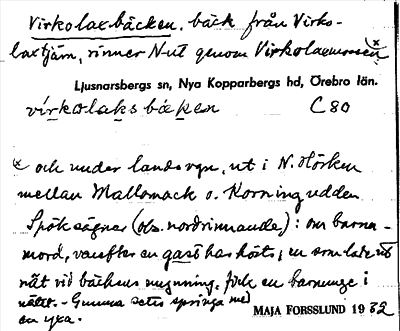 Virkolaxbäcken, bäck från Virko-
laxtjärn, rinner N ut genom Virkolaxmossen x
Ljusnarsbergs sn, Nya Kopparbergs hd, Örebro län.
virkolaks bäken C 80
x och under landsvgn, ut i N. Hörken
mellan Mallomack o. Korningudden
Spöksägner (obs. nordrinnande): om barna-
mord, varefter en gast har hörts; en som lade ut
nät vid bäckens mynning, fick en barnunge i
nätet. - Gumma setts springa med
en yxa.
MAJA FORSSLUND 1932